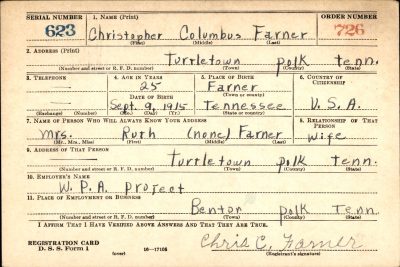 SERIAL NUMBER 1. NAME (Print) ORDER NUMBER
623 Christopher Columbus Farner 726
(First) (Middle) (Last)
2. ADDRESS (Print)
Turtletown Polk Tenn.
(Number and street or R. F. D. number) (Town) (County) (State)
3. TELEPHONE 4. AGE IN YEARS 5. PLACE OF BIRTH 6. COUNTRY OF CITIZENSHIP
25 Farner
DATE OF BIRTH (Town or county)
Sept. 9, 1915 Tennessee U.S.A.
(Exchange) (Number) (Mo.) (Day) (Yr.) (State or country)
7. NAME OF PERSON WHO WILL ALWAYS KNOW YOUR ADDRESS 8. RELATIONSHIP OF THAT PERSON
Mrs. Ruth (none) Farner Wife
(Mr., Mrs., Miss) (First) (Middle) (Last)
9. ADDRESS OF THAT PERSON
Turtletown Polk Tenn.
(Number and street or R. F. D. number) (Town) (County) (State)
10. EMPLOYER'S NAME
W.P.A. Project
11. PLACE OF EMPLOYMENT OR BUSINESS
Benton Polk Tenn.
(Number and street or R. F. D. number) (Town) (County) (State)
I AFFIRM THAT I HAVE VERIFIED ABOVE ANSWERS AND THAT THEY ARE TRUE.
REGISTRATION CARD
D. S. S. Form 1 (over) 16—17105 Chris C. Farner
(Registrant's signature)